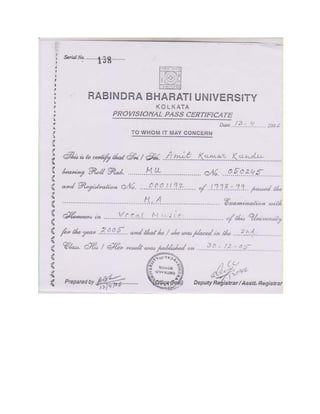 Serial No. 138
RABINDRA BHARATI UNIVERSITY
KOLKATA
PROVISIONAL PASS CERTIFICATE
Date 12.4
TO WHOM IT MAY CONCERN
This is to certify that Sri / Sm. Amit Kumar Kundu
bearing Roll Rab. MU No. 050245
and Registration No. 0001192 of 1998-99 passed the
M.A Examination with
Honours in Vocal Music of this University
for the year 2005 and that he / she was placed in the 2nd
Class. His / Her result was published on 30-12-05
Prepared by
Deputy Registrar / Asstt. Registrar